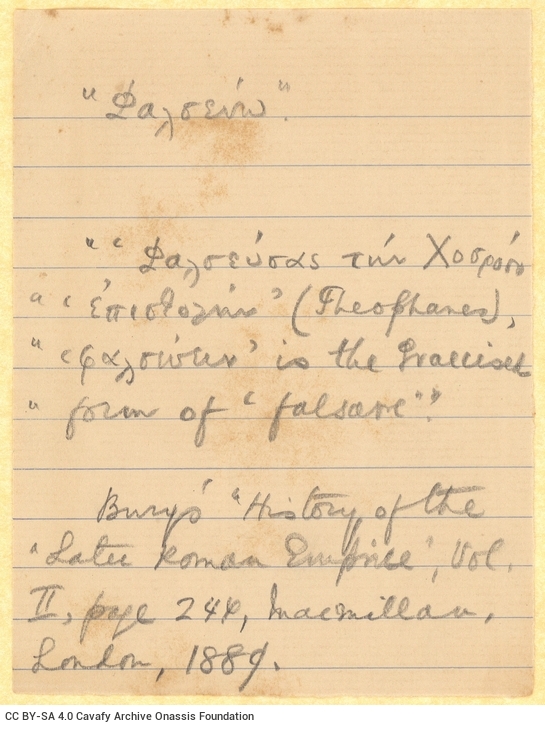 "Φαλσεύω".
"'Φαλσεύσας τὴν Χοσρόου
" 'ἐπιστολὴν' (Theophanes),
" 'φαλσεύειν' is the Graecised
" form of 'falsare'".
Bury's "History of the
"Later Roman Empire", Vol.
II, page 244, Macmillan,
London, 1889.
CC BY-SA 4.0 Cavafy Archive Onassis Foundation